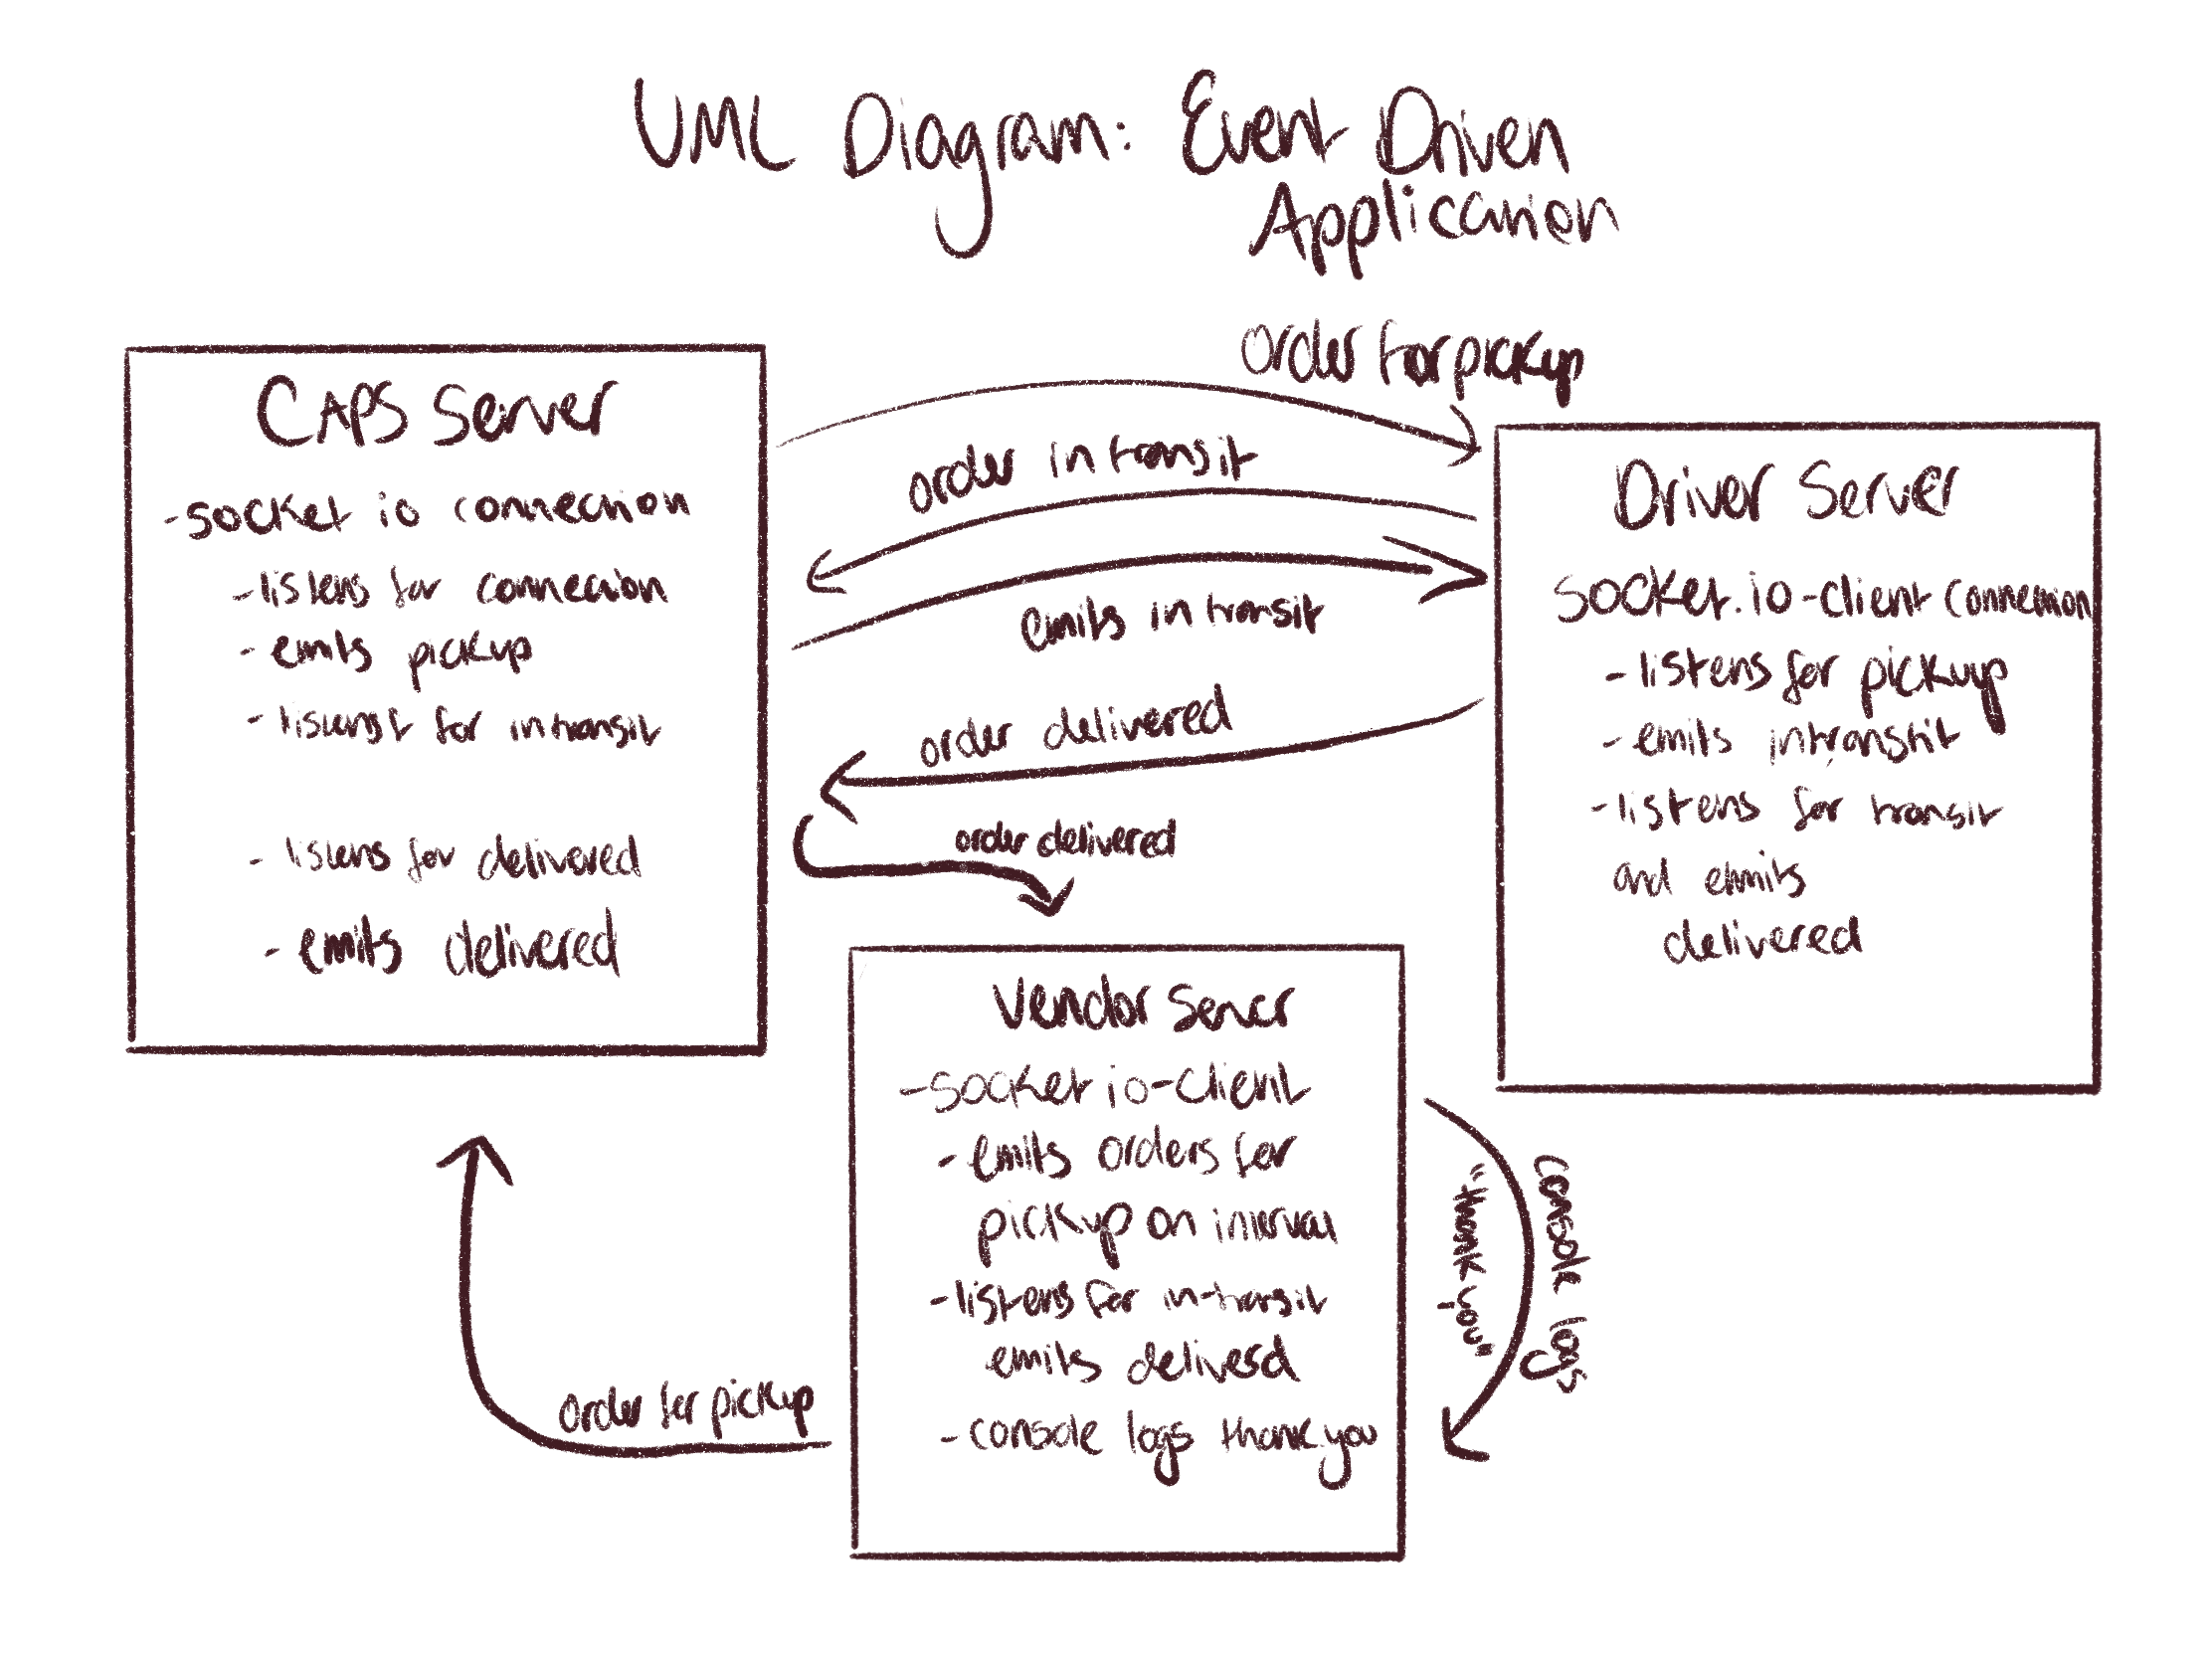 UML Diagram: Event Driven
Application
CAPS Server
- socket io connection
- listens for connection
- emits pickup
- listenst for in transit
- listens for delivered
- emits delivered
order for pickup
order in transit
emits in transit
order delivered
order delivered
Driver Server
socket.io-client connection
- listens for pickup
- emits intransit
- listens for transit
and emits
delivered
Vendor Server
- socket io-client
- emits orders for
pickup on interval
- listens for in-transit
emits deliverd
- console logs thank you
order for pickup
console logs
"thank you"